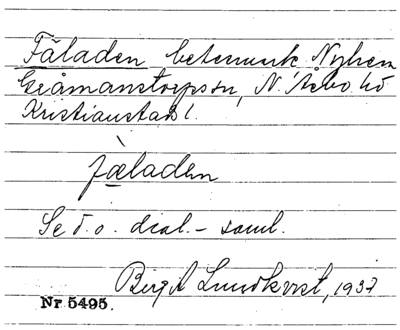 Fäladen betesmark Nyhem
Gråmanstorps sn, N. Åsbo hd
Kristianstads l.
fæ̀laden
Se d. o. dial.- saml.
Birgit Lundkvist, 1937
Nr. 5495.